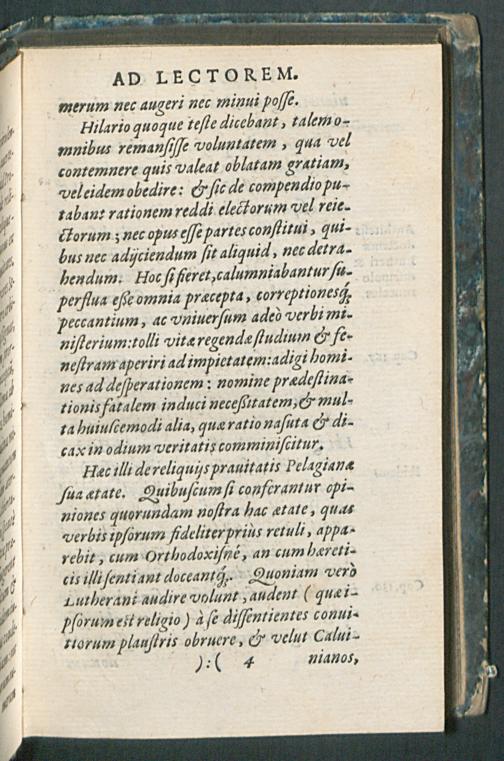 AD LECTOREM.
merum nec augeri nec minui poſſe.
Hilario quoque teſte dicebant, talem o-
mnibus remanſiſſe voluntatem, qua vel
contemnere quis valeat oblatam gratiam,
vel eidem obedire: & ſic de compendio pu-
tabant rationem reddi electorum vel reie-
ctorum; nec opus eſſe partes conſtitui, qui-
bus nec adijciendum ſit aliquid, nec detra-
hendum. Hoc ſi fieret, calumniabantur ſu-
perflua eße omnia præcepta, correptionesq́;
peccantium, ac vniuerſum adeò verbi mi-
niſterium: tolli vitæ regendæ ſtudium & fe-
neſtram aperiri ad impietatem: adigi homi-
nes ad deſperationem: nomine prædeſtina-
tionis fatalem induci neceßitatem, & mul-
ta huiuſcemodi alia, quæ ratio naſuta & di-
cax in odium veritatis comminiſcitur.
Hæc illi de reliquijs prauitatis Pelagianæ
ſua ætate. Quibuſcum ſi conferantur opi-
niones quorundam noſtra hac ætate, quas
verbis ipſorum fideliter priùs retuli, appa-
rebit, cum Orthodoxiſné, an cum hæreti-
cis illi ſentiant doceantq́;. Quoniam verò
Lutherani audire volunt, audent (quæ i-
pſorum est religio) à ſe diſſentientes conui-
tiorum plauſtris obruere, & velut Calui-
):( 4 nianos,